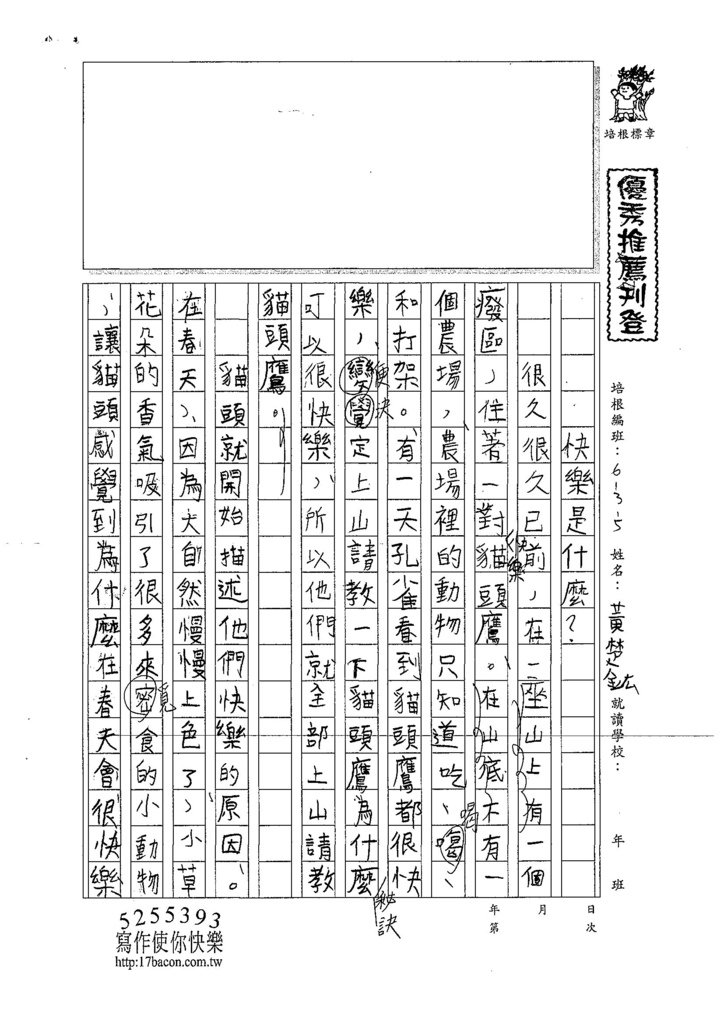 培根標章
優秀推薦刊登
培根編班：613-5 姓名：黃楚鈜 就讀學校： 年 班
日次
月
年第
快樂是什麼？
很久很久已前，在一座山上有一個
癈區，住著一對貓頭鷹。在山底下有一
快樂
個農場，農場裡的動物只知道吃、喝、
喝
和打架。有一天孔雀看到貓頭鷹都很快
樂，變覺定上山請教一下貓頭鷹為什麼
便決
秘訣
可以很快樂，所以他們就全部上山請教
貓頭鷹。
貓頭就開始描述他們快樂的原因。
在春天，因為大自然慢慢上色了，小草
花朵的香氣吸引了很多來密食的小動物
覓
，讓貓頭感覺到為什麼在春天會很快樂
5255393
寫作使你快樂
http:17bacon.com.tw